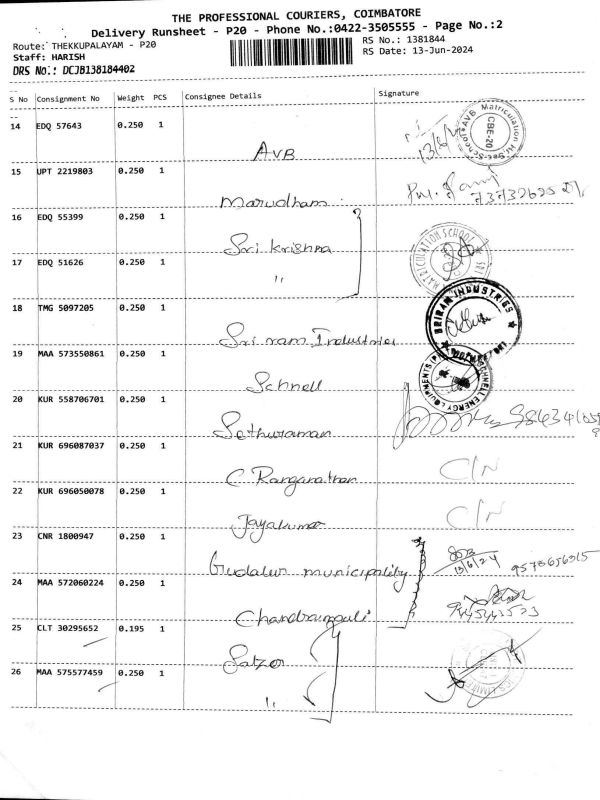 THE PROFESSIONAL COURIERS, COIMBATORE
Delivery Runsheet - P20 - Phone No.:0422-3505555 - Page No.:2
Route: THEKKUPALAYAM - P20 RS No.: 1381844
Staff: HARISH RS Date: 13-Jun-2024
DRS No.: DCJB138184402
S No Consignment No Weight PCS Consignee Details Signature
14 EDQ 57643 0.250 1 AVB
AVB Matriculation Hr.Sec.School CBE-20
15 UPT 2219803 0.250 1 Marudham
16 EDQ 55399 0.250 1 Sri Krishna
MATRICULATION SCHOOL
17 EDQ 51626 0.250 1 "
18 TMG 5097205 0.250 1 Sri ram Industries
SRIRAM INDUSTRIES
19 MAA 573550861 0.250 1 Schnell
SCHNELL ENERGY EQUIPMENTS (P)
20 KUR 558706701 0.250 1 Sethuraman
21 KUR 696087037 0.250 1 C Ranganathan C/N
22 KUR 696050078 0.250 1 Jayakumar C/N
23 CNR 1800947 0.250 1 Gudalur municipality 13/6/24
24 MAA 572060224 0.250 1
25 CLT 30295652 0.195 1 Salzer
26 MAA 575577459 0.250 1 "